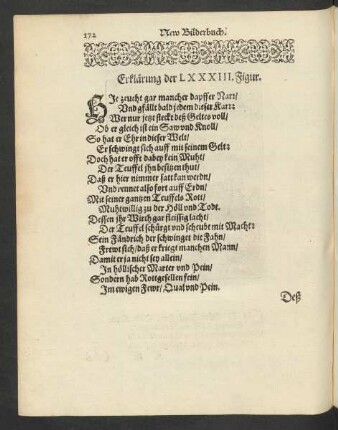 172
New Bilderbuch.
Erklärung der LXXXIII. Figur.
HIe zeucht gar mancher dapffer Narr/
Vnd gfällt bald jedem dieser Kar:
Wer nur jetzt steckt deß Geltes voll/
Ob er gleich ist ein Saw vnd Knoll/
So hat er Ehr in dieser Welt/
Er schwingt sich auff mit seinem Gelt:
Doch hat er offt dabey kein Muht/
Der Teuffel jhn besitzen thut/
Daß er hier nimmer satt kan werdn/
Vnd rennet also fort auff Erdn/
Mit seiner gantzen Teuffels Rott/
Muhtwillig zu der Höll vnd Todt.
Dessen jhr Wirth gar fleissig lacht/
Der Teuffel schürgt vnd scheubt mit Macht:
Sein Fändrich der schwinget die Fahn/
Frewt sich/ daß er kriegt manchen Mann/
Damit er ja nicht sey allein/
In höllischer Marter vnd Pein/
Sondern hab Rottgesellen fein/
Im ewigen Fewr/ Qual vnd Pein.
Deß